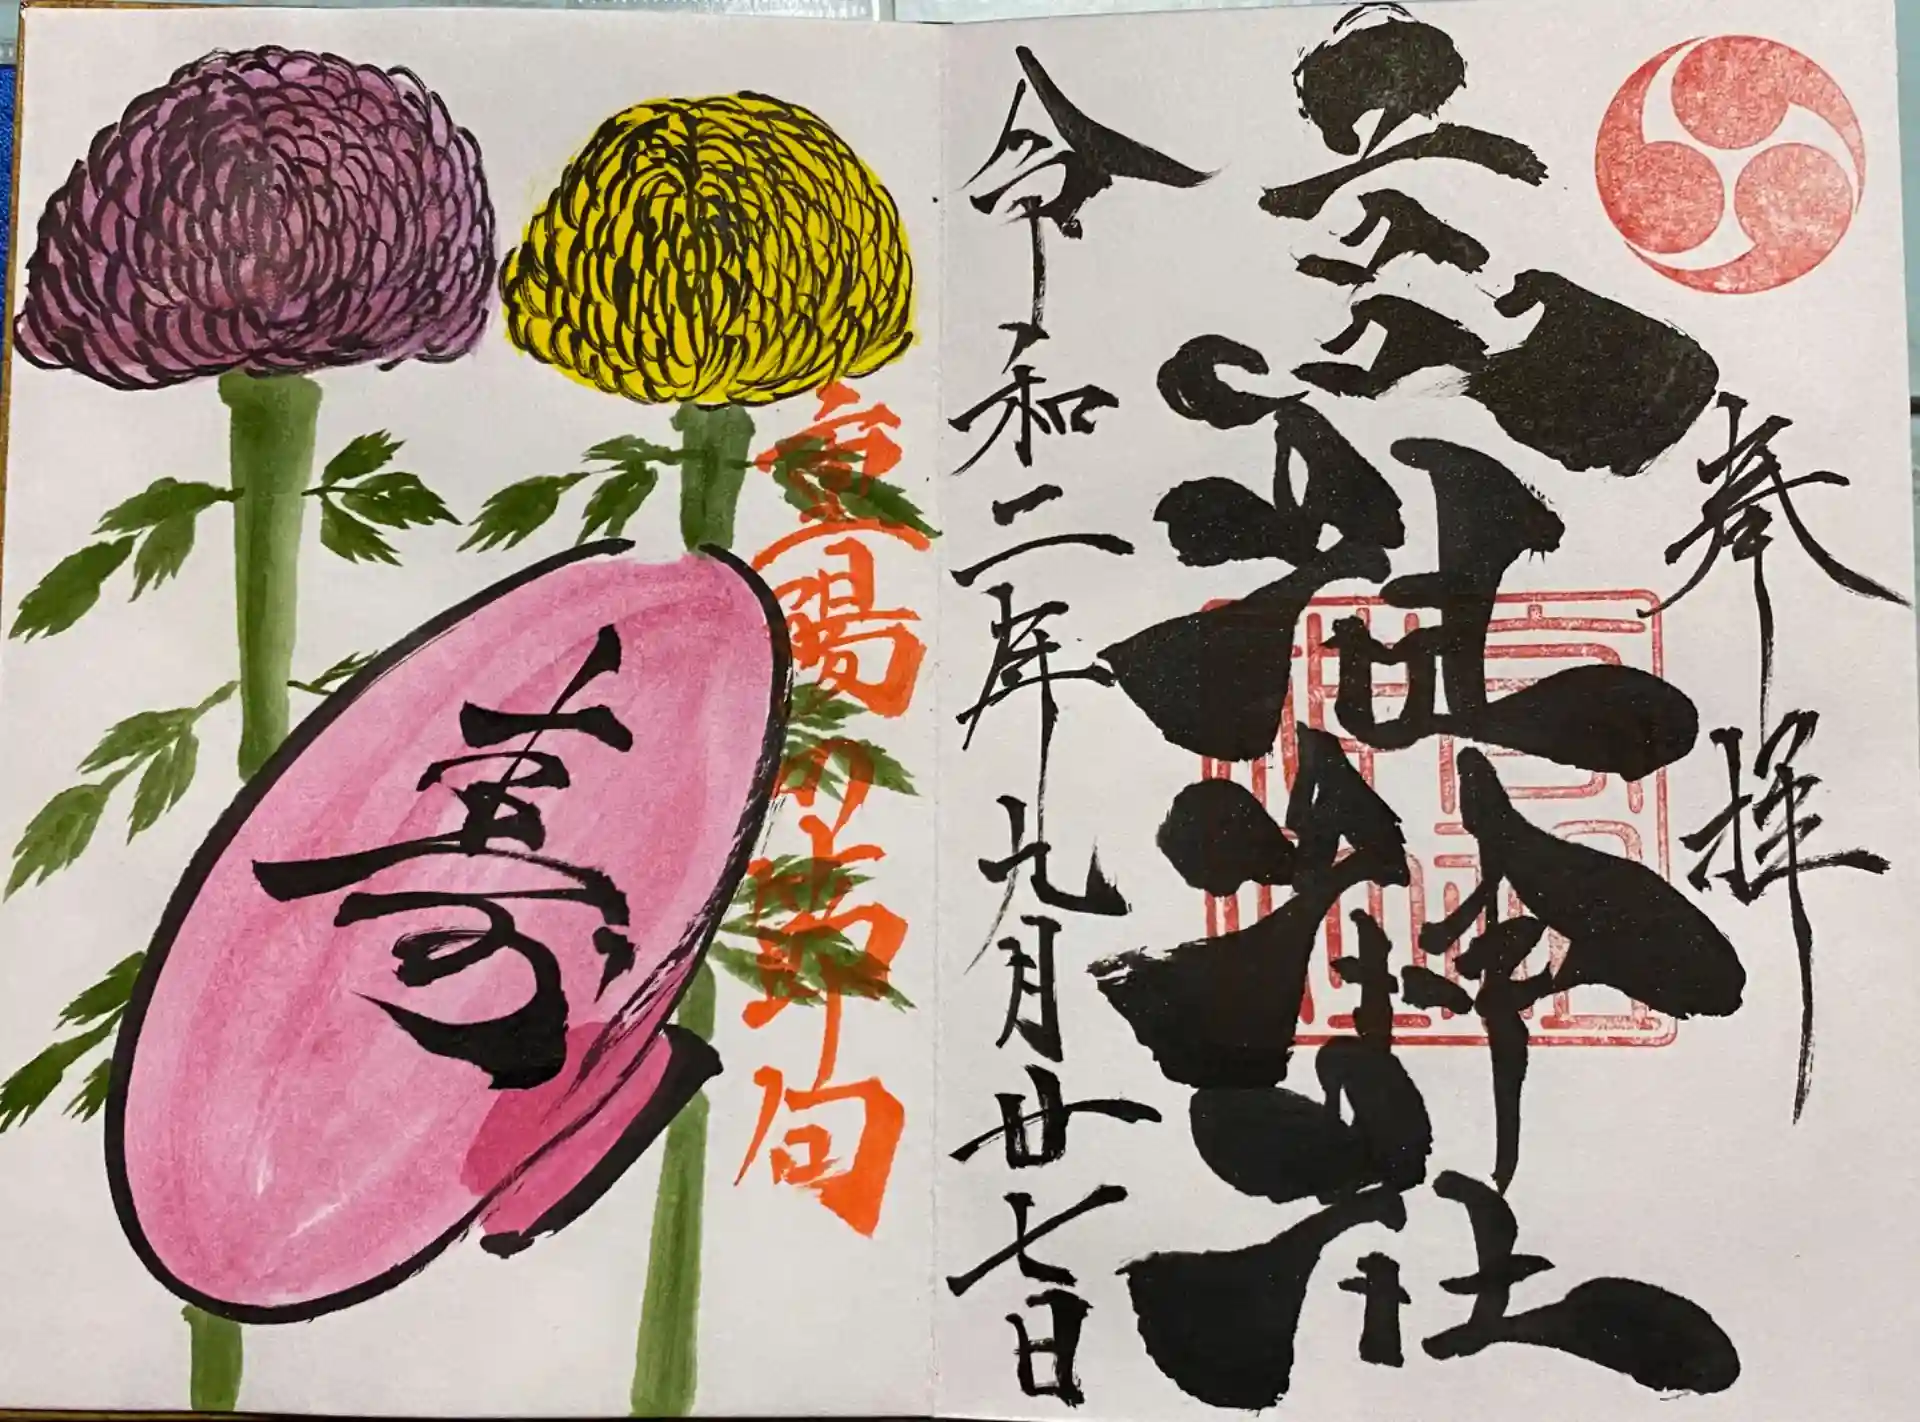 奉拝
神社
令和二年九月廿七日
重陽の節句
壽